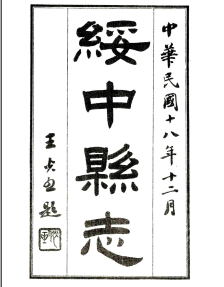 中華民國十八年十二月
綏中縣志
王文𤋮題